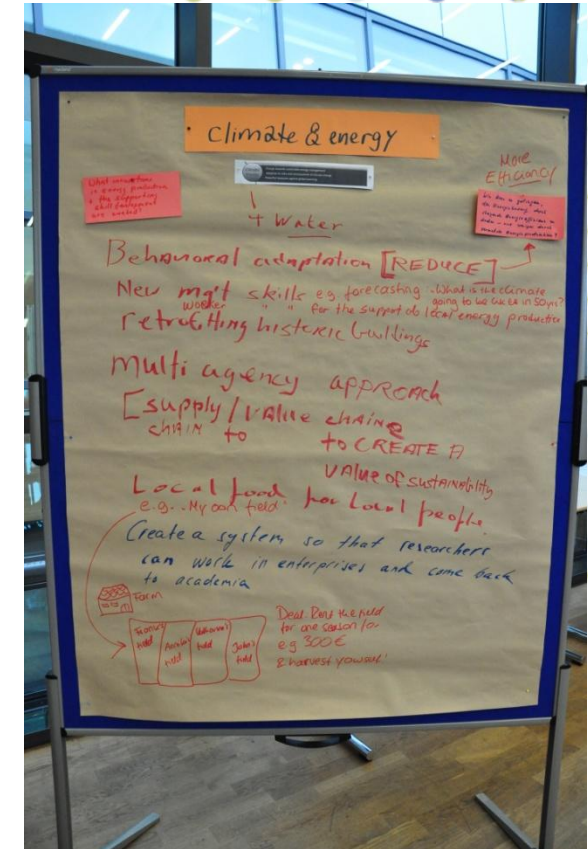 climate & energy
More
Efficiency
What innovations
in energy production
& the supporting
skill development
are needed?
+ Water
Behavioral adaptation [REDUCE]
New mg't skills eg forecasting. What is the climate
going to be like in 50yrs?
worker " " for the support of local energy production
retrofitting historic buildings
Multi agency approach
[supply / value chaine
chain to to CREATE A
value of sustainability
Local food for Local people
e.g. "My own field"
Create a system so that researchers
can work in enterprises and come back
to academia
Farm
field
field
field
John's
field
Deal: Rent the field
for one season for
e.g 300€
& harvest yourself!